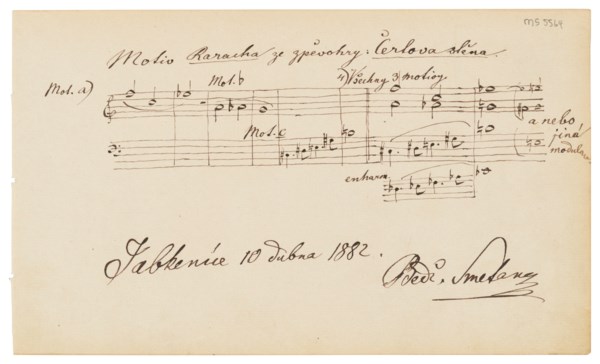 MS 5564
Motiv Raracha ze zpěvohry: Čertova stěna.
Mot. a)
Mot. b
4) Všechny 3 motivy
Mot. c
a nebo
jiná
modulace
enharm.
Jabkenice 10 dubna 1882.
Bedř. Smetana